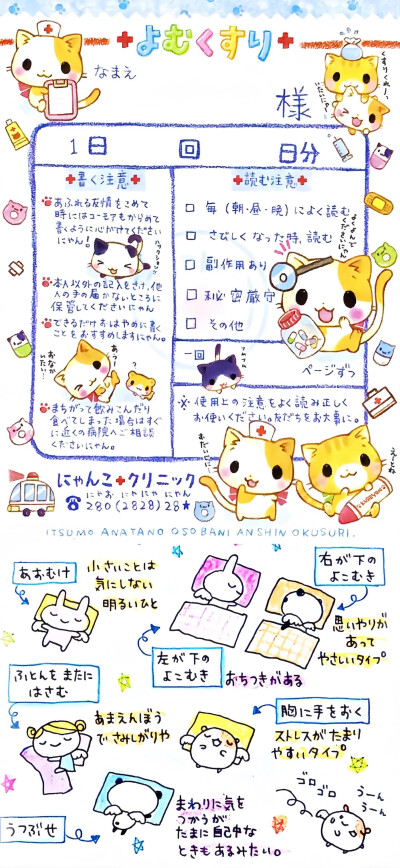 よむくすり
なまえ
様
くすりくれー、
いたいにゃー
1日 回 日分
書く注意
あふれる友情をこめて
時にはユーモアもかりめて
書くように心がけてください
にゃん!
本人以外の記入をさけ、他
人の手の届かないところに
保管してくださいにゃん
できるだけおはやめに書く
ことをおすすめしますにゃん。
おなか
いたい…
あっつー
まちがって飲みこんだり
食べてしまった場合はすぐ
に近くの病院へご相談
くださいにゃん。
読む注意
毎(朝・昼・晩)によく読む
さびしくなった時、読む
副作用あり
秘密厳守
その他
よくよんで
くださいにゃん
一回
ページずつ
※使用上の注意をよく読み正しく
お使いください。友だちをお大事に。
おだいじに!
にゃんこクリニック
にゃお にゃにゃ にゃん
☎280(2828)28★
ITSUMO ANATANO OSOBANI ANSHIN OKUSURI.
あおむけ
小さいことは
気にしない
明るいひと
右が下の
よこむき
思いやりが
あって
やさしいタイプ
左が下の
よこむき
おちつきがある
ふとんをまたに
はさむ
あまえんぼう
でさみしがりや
胸に手をおく
ストレスがたまり
やすいタイプ
うつぶせ
まわりに気を
つかうが
たまに自己中な
ときもあるみたい。
ゴロ
ゴロ
うーん
うーん